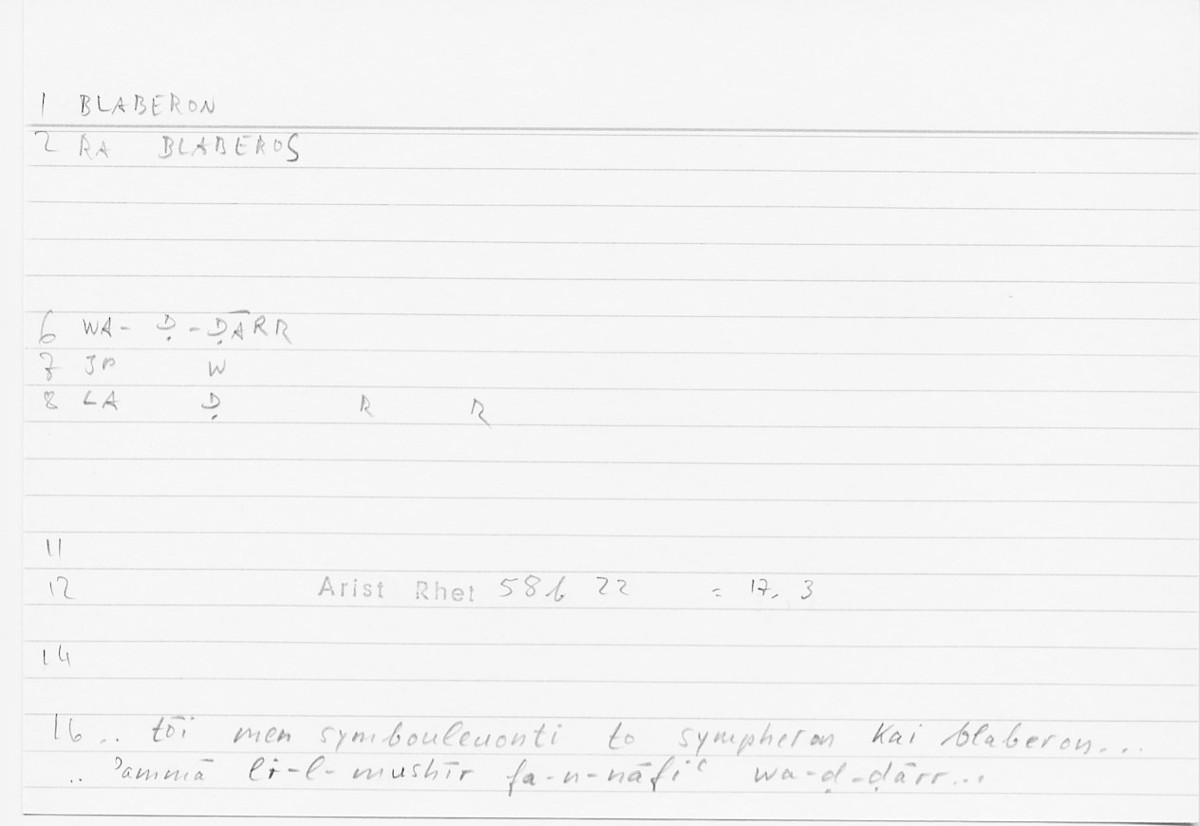 1 BLABERON
2 RA BLABEROS
6 WA- Ḍ-ḌĀRR
7 JP W
8 LA Ḍ R R
11
12 Arist Rhet 58b 22 = 17, 3
14
16 .. tōi men symbouleuonti to sympheron kai blaberon...
.. ʾammā li-l-mushīr fa-n-nāfiʿ wa-ḍ-ḍārr...